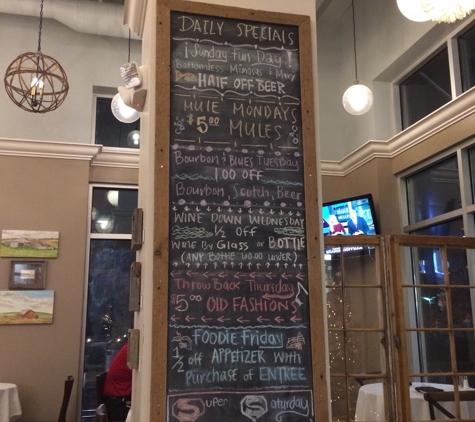 DAILY SPECIALS
¡Sunday Fun Day!
Bottomless Mimosas & Mary
HALF OFF BEER
MULE MONDAYS
$5.00 MULES
Bourbon & BLUES TUESDAY
1.00 OFF
Bourbon, Scotch, Beer
WINE DOWN WEDNESDAY
1/2 OFF
Wine By GLASS or BOTTLE
(ANY BOTTLE 40.00 UNDER)
Throw Back Thursday
$5.00 OLD FASHIONS
FOODIE Friday
1/2 off APPETIZER with
Purchase of ENTREE
Super Saturday